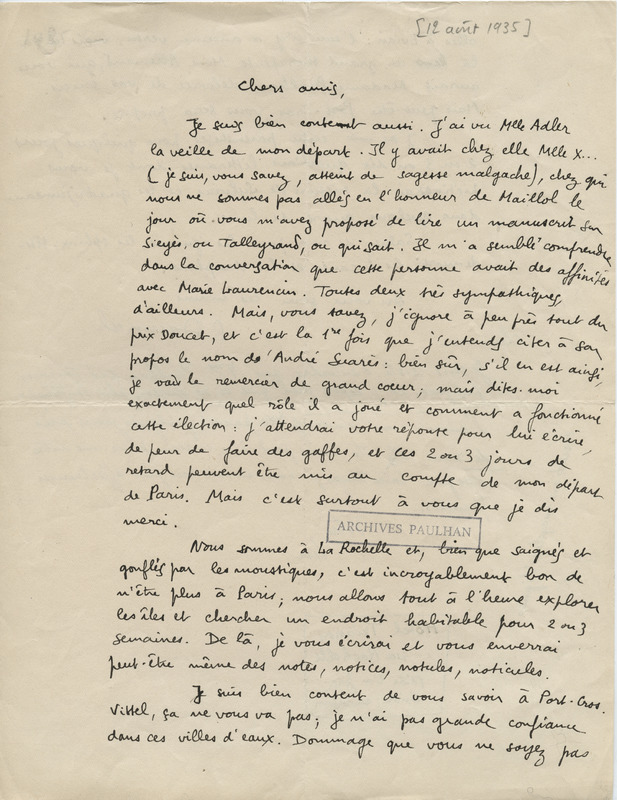 [12 août 1935]
Chers amis,
Je suis bien content aussi. J'ai vu Mlle Adler
la veille de mon départ. Il y avait chez elle Mlle X...
(je suis, vous savez, atteint de sagesse malgache), chez qui
nous ne sommes pas allés en l'honneur de Maillol le
jour où vous m'avez proposé de lire un manuscrit sur
Sieyès, ou Talleyrand, ou qui sait. Il m'a semblé comprendre
dans la conversation que cette personne avait des affinités
avec Marie Laurencin. Toutes deux très sympathiques,
d'ailleurs. Mais, vous savez, j'ignore à peu près tout du
prix Doucet, et c'est la 1re fois que j'entends citer à son
propos le nom d'André Suarès : bien sûr, s'il en est ainsi,
je vais le remercier de grand coeur ; mais dites-moi
exactement quel rôle il a joué et comment a fonctionné
cette élection : j'attendrai votre réponse pour lui écrire,
de peur de faire des gaffes, et ces 2 ou 3 jours de
retard peuvent être mis au compte de mon départ
de Paris. Mais c'est surtout à vous que je dis
merci.
ARCHIVES PAULHAN
Nous sommes à La Rochelle et, bien que saignés et
gonflés par les moustiques, c'est incroyablement bon de
n'être plus à Paris ; nous allons tout à l'heure explorer
les îles et chercher un endroit habitable pour 2 ou 3
semaines. De là, je vous écrirai et vous enverrai
peut-être même des notes, notices, notules, noticules.
Je suis bien content de vous savoir à Port-Cros.
Vittel, ça ne vous va pas ; je n'ai pas grande confiance
dans ces villes d'eaux. Dommage que vous ne soyez pas